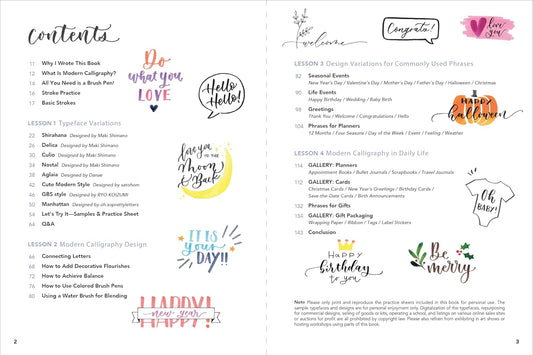 contents
11 Why I Wrote This Book
12 What Is Modern Calligraphy?
14 All You Need is a Brush Pen!
16 Stroke Practice
17 Basic Strokes
Do
what you
LOVE
Hello
Hello!
LESSON 1 Typeface Variations
22 Shirahana Designed by Maki Shimano
26 Delica Designed by Maki Shimano
30 Culio Designed by Maki Shimano
34 Nostal Designed by Maki Shimano
38 Aglaia Designed by Danae
42 Cute Modern Style Designed by satohom
46 GBS style Designed by RYO KOIZUMI
50 Manhattan Designed by oh.soprettyletters
54 Let's Try It—Samples & Practice Sheet
64 Q&A
Love you
TO THE
Moon
& Back
LESSON 2 Modern Calligraphy Design
66 Connecting Letters
68 How to Add Decorative Flourishes
72 How to Achieve Balance
76 How to Use Colored Brush Pens
80 Using a Water Brush for Blending
IT IS
your
DAY!!
HAPPY!
new year
2
welcome
Congrats!
love
you
LESSON 3 Design Variations for Commonly Used Phrases
82 Seasonal Events
New Year's Day / Valentine's Day / Mother's Day / Father's Day / Halloween / Christmas
90 Life Events
Happy Birthday / Wedding / Baby Birth
98 Greetings
Thank You / Welcome / Congratulations / Hello
104 Phrases for Planners
12 Months / Four Seasons / Day of the Week / Event / Feeling / Weather
HAPPY
halloween
LESSON 4 Modern Calligraphy in Daily Life
114 GALLERY: Planners
Appointment Books / Bullet Journals / Scrapbooks / Travel Journals
122 GALLERY: Cards
Christmas Cards / New Year's Greetings / Birthday Cards /
Save-the-Date Cards / Birth Announcements
132 Phrases for Gifts
134 GALLERY: Gift Packaging
Wrapping Paper / Ribbon / Tags / Label Stickers
143 Conclusion
Oh
BABY!
HAPPY
birthday
to you
Be
merry
Note Please only print and reproduce the practice sheets included in this book for personal use. The
sample typefaces and designs are for personal enjoyment only. Digitalization of the typefaces, repurposing
for commercial designs, selling of goods or kits, operating a school, and listings on various online sales sites
or auctions for profit are all prohibited by copyright law. Please also refrain from exhibiting in art shows or
hosting workshops using parts of this book.
3